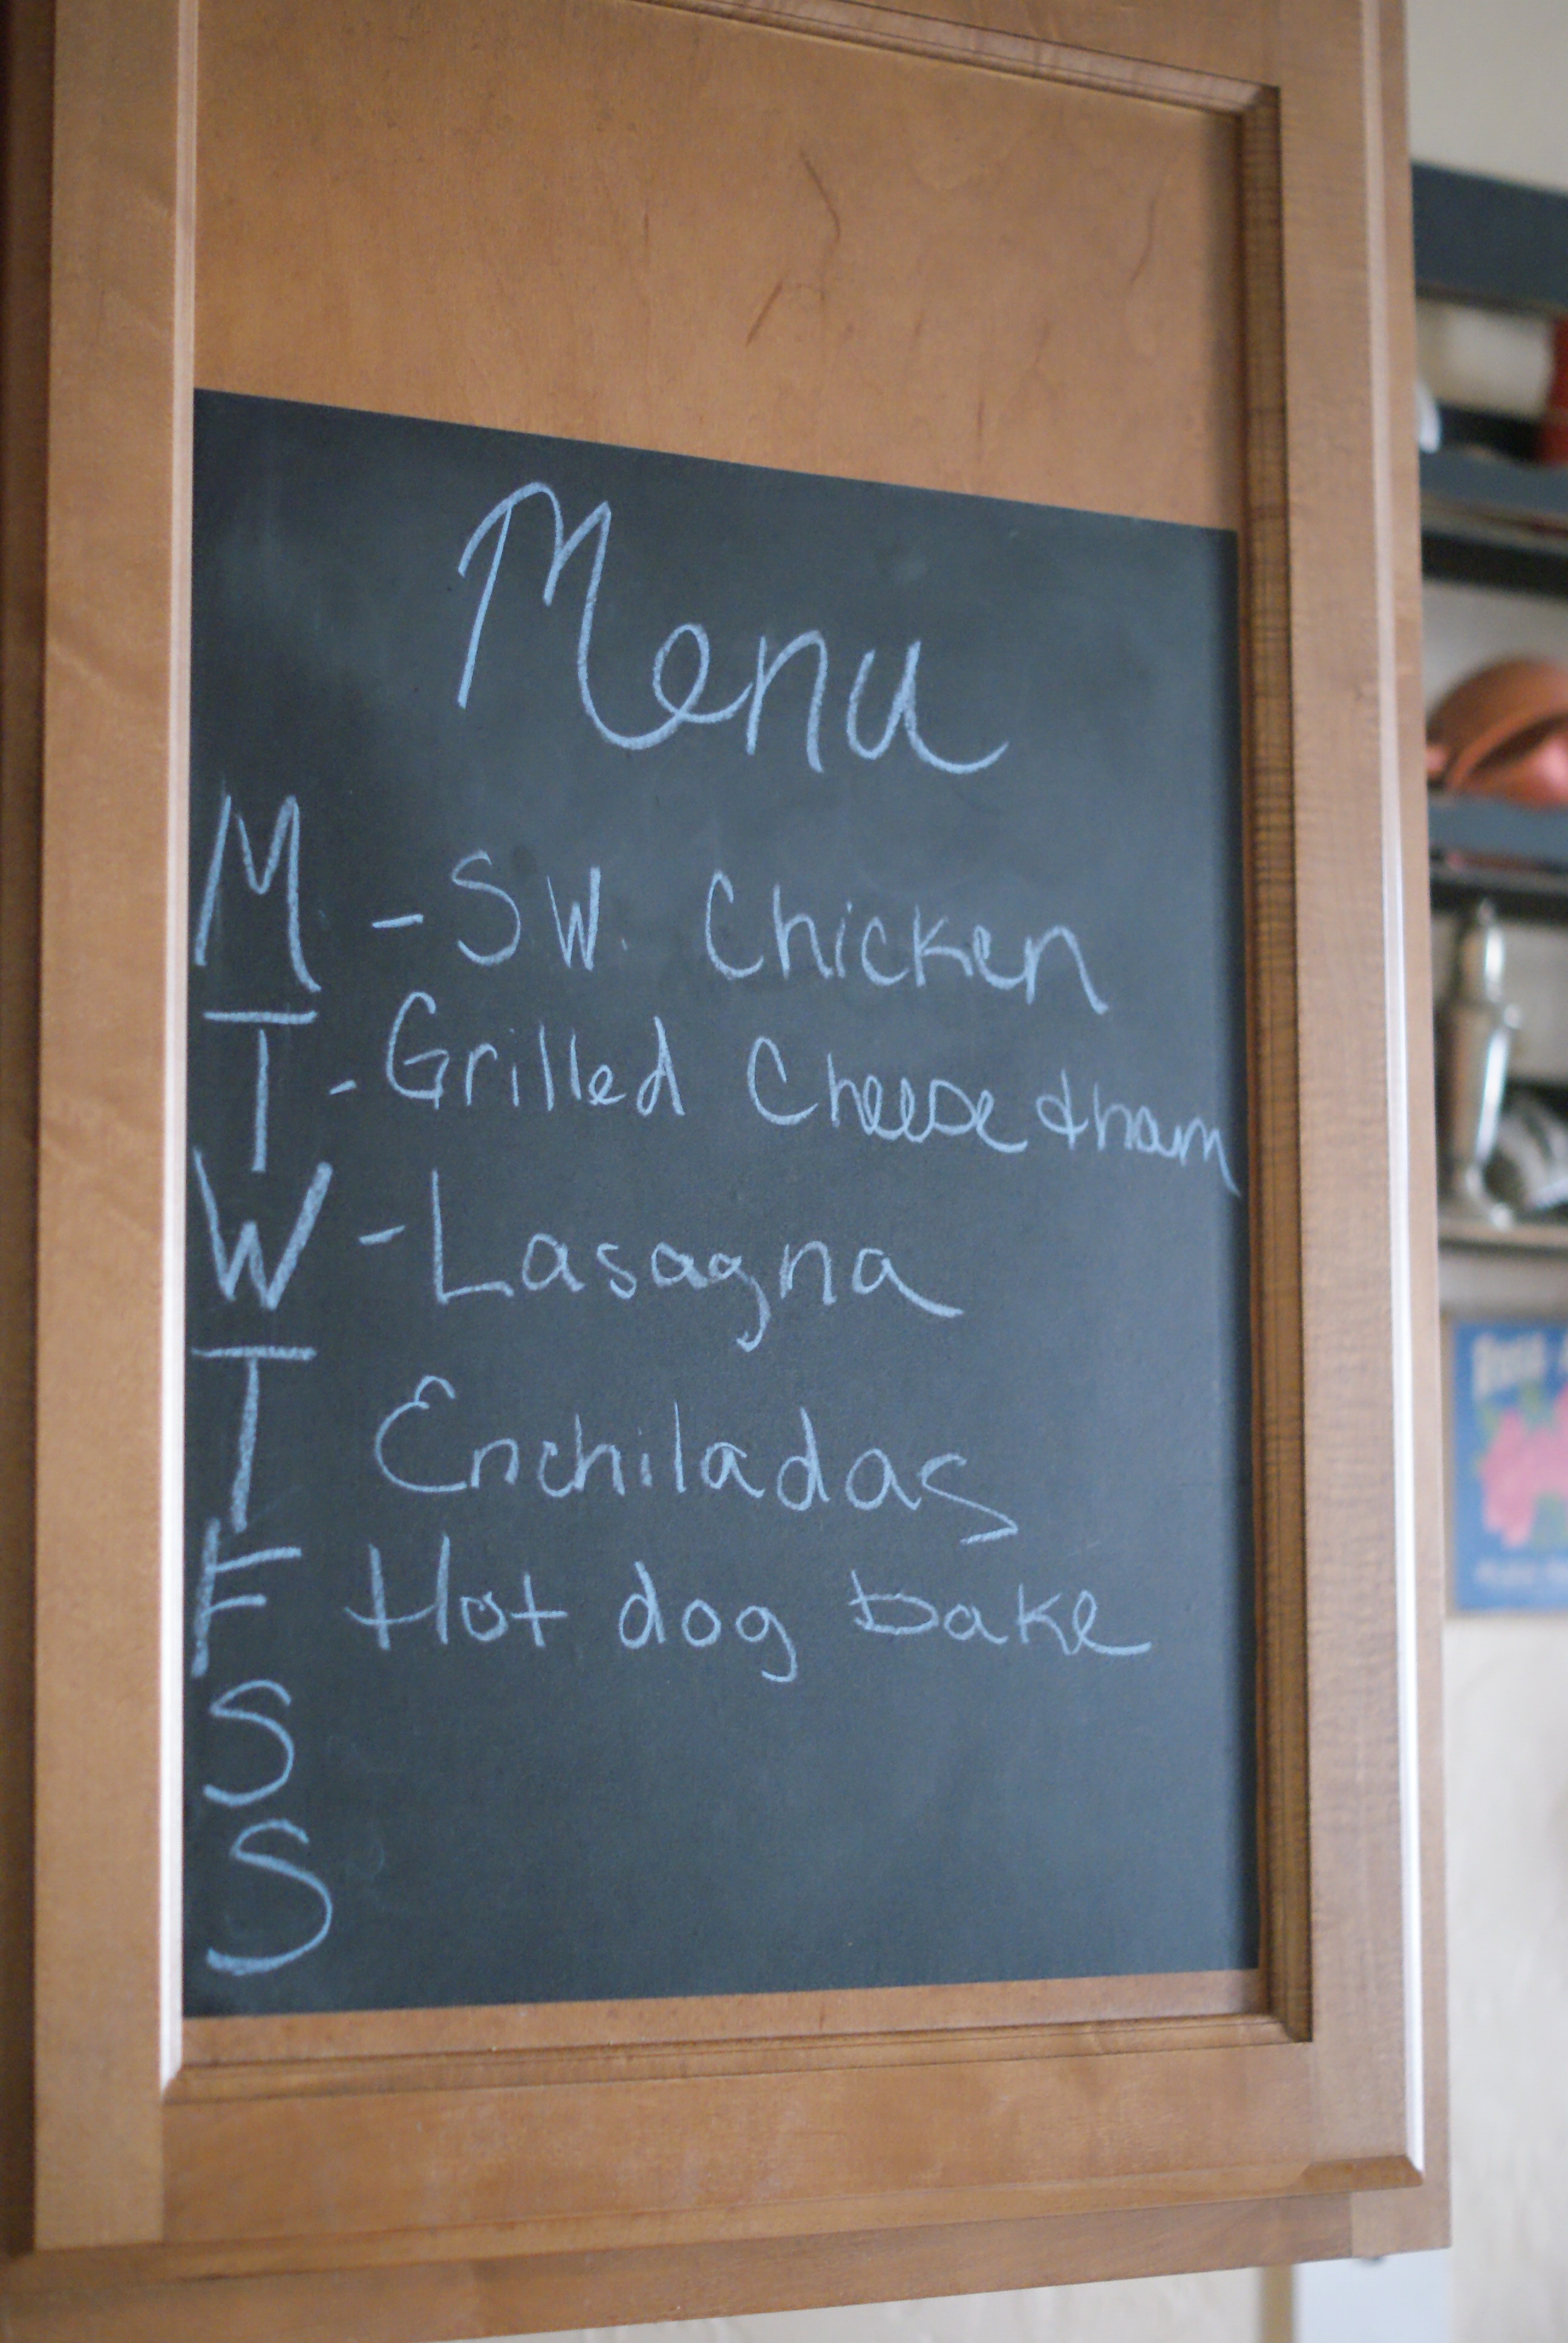 Menu
M - SW. Chicken
T - Grilled Cheese & ham
W - Lasagna
T Enchiladas
F Hot dog bake
S
S